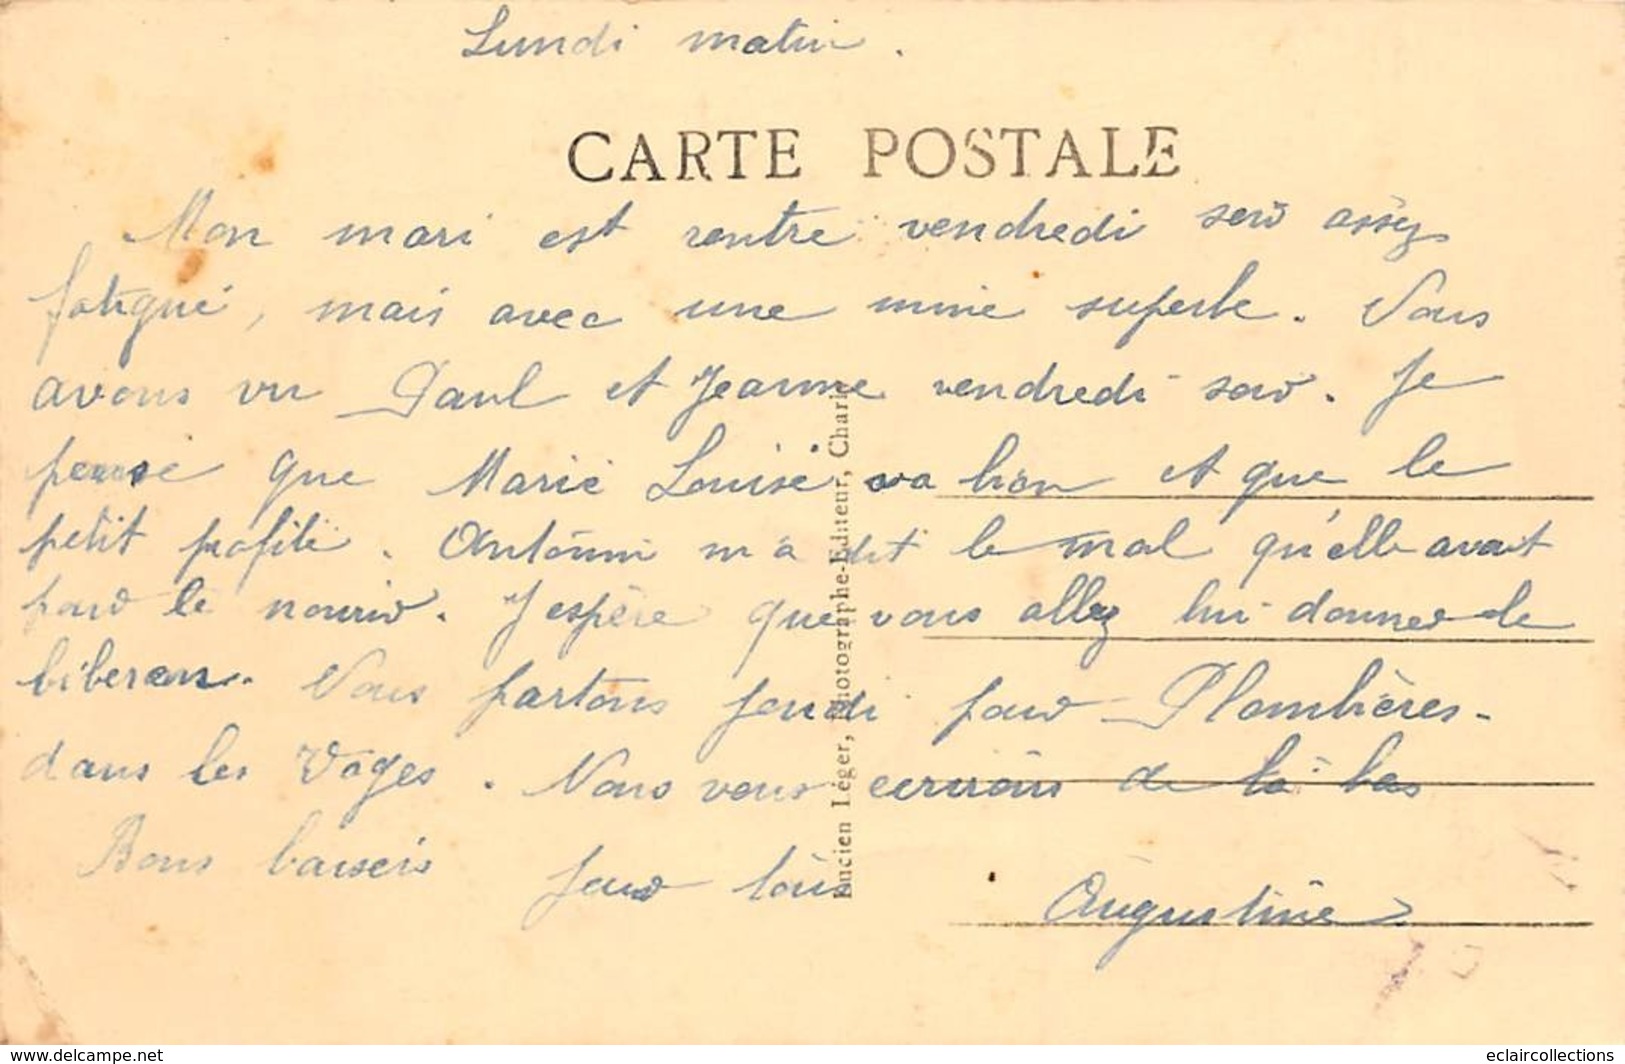 Lundi matin.
CARTE POSTALE
Mon mari est rentre vendredi soir assez
fatigué, mais avec une mine superbe. Nous
avons vu Paul et Jeanne vendredi soir. Je
pense que Marie Louise va bien et que le
petit profite. Antonin m'a dit le mal qu'elle avait
pour le nourir. J'espère que vous allez lui donner le
biberon. Nous partons jeudi pour Plombières-
dans les Vosges. Nous vous ecrirons de là-bas
Bons baisers pour tous
Augustine
Lucien Léger, Photographe-Editeur, Charli
delcampe.net
eclaircollections